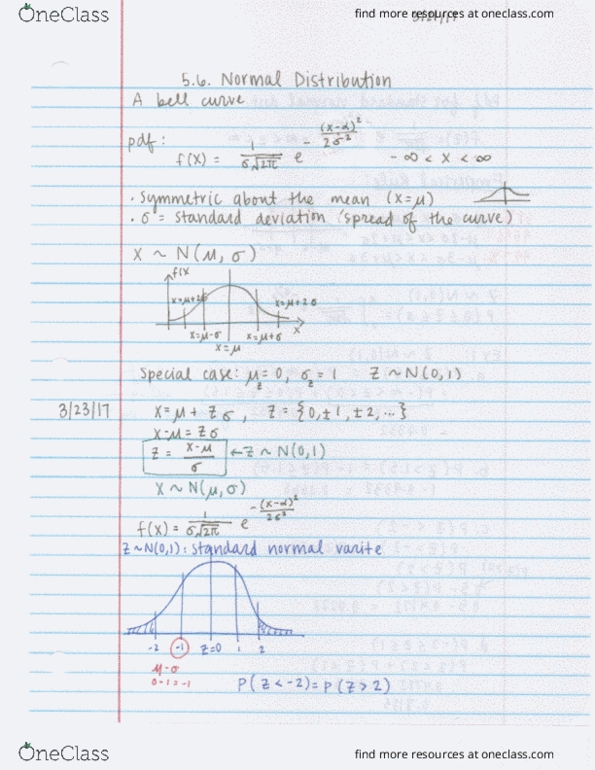 OneClass
find more resources at oneclass.com
5.6. Normal Distribution
A bell curve
pdf: f(x) = 1/σ√2π e -(x-α)²/2σ² -∞ < x < ∞
· Symmetric about the mean (x=μ)
· σ = standard deviation (spread of the curve)
X ~ N(μ, σ)
f(x
x=μ+2σ x=μ+2σ
x=μ-σ x=μ+σ x
x=μ
Special case: μz=0, σz=1 Z~N(0,1)
3/23/17 X=μ+ Zσ, Z= {0,±1, ±2, ...}
X-μ = Zσ
Z = x-μ/σ ←Z ~ N(0,1)
X ~ N(μ, σ)
f(x) = 1/σ√2π e -(x-α)²/2σ²
Z~N(0,1): standard normal varite
-2 -1 Z=0 1 2
μ-σ
0-1=-1
P(Z<-2)=P(Z>2)
OneClass
find more resources at oneclass.com